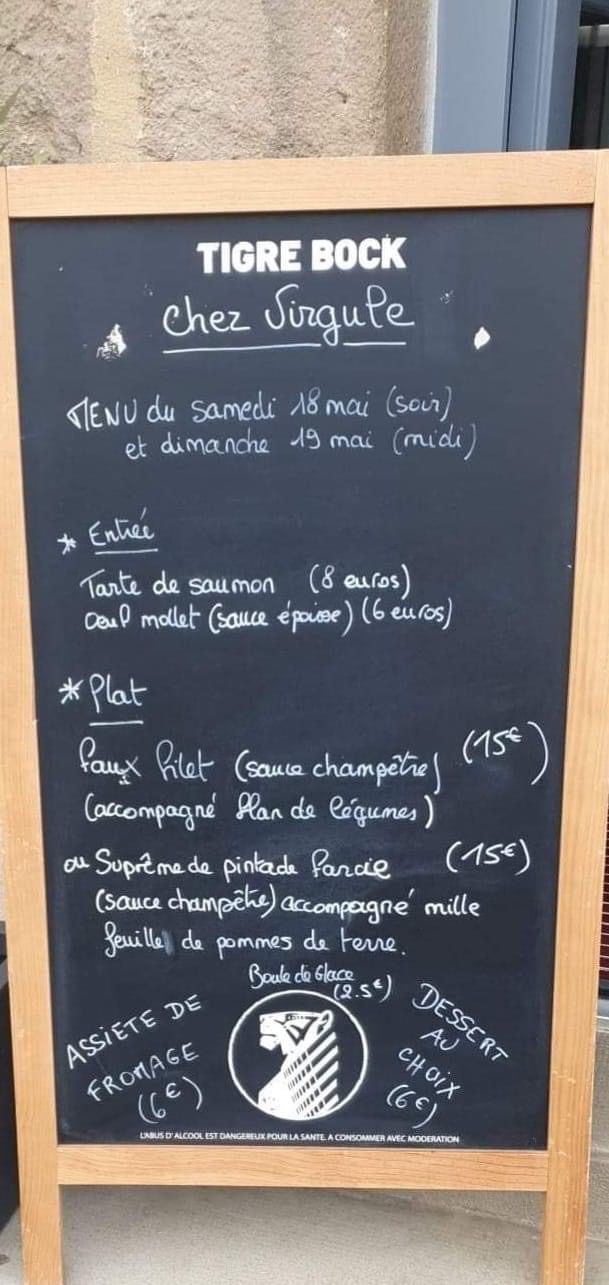 TIGRE BOCK
chez Virgule
MENU du samedi 18 mai (soir)
et dimanche 19 mai (midi)
* Entrée
Tarte de saumon (8 euros)
Oeuf mollet (sauce époisse) (6 euros)
* Plat
faux filet (sauce champêtre) (15€)
(accompagné flan de légumes)
ou Suprême de pintade farcie (15€)
(sauce champêtre) accompagné mille
feuille de pommes de terre.
Boule de Glace
(2.5€)
ASSIETE DE
FROMAGE
(6€)
DESSERT
AU
CHOIX
(6€)
L'ABUS D'ALCOOL EST DANGEREUX POUR LA SANTE. A CONSOMMER AVEC MODERATION